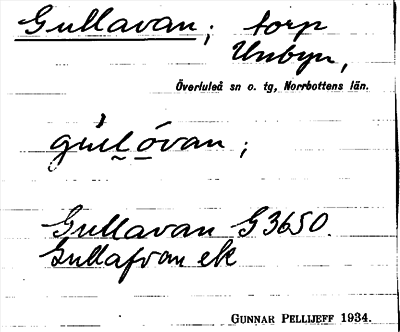 Gullavan; torp
Unbyn,
Överluleå sn o. tg, Norrbottens län.
gùl̰óvan;
Gullavan G3650.
Gullafvan ek
GUNNAR PELLIJEFF 1934.